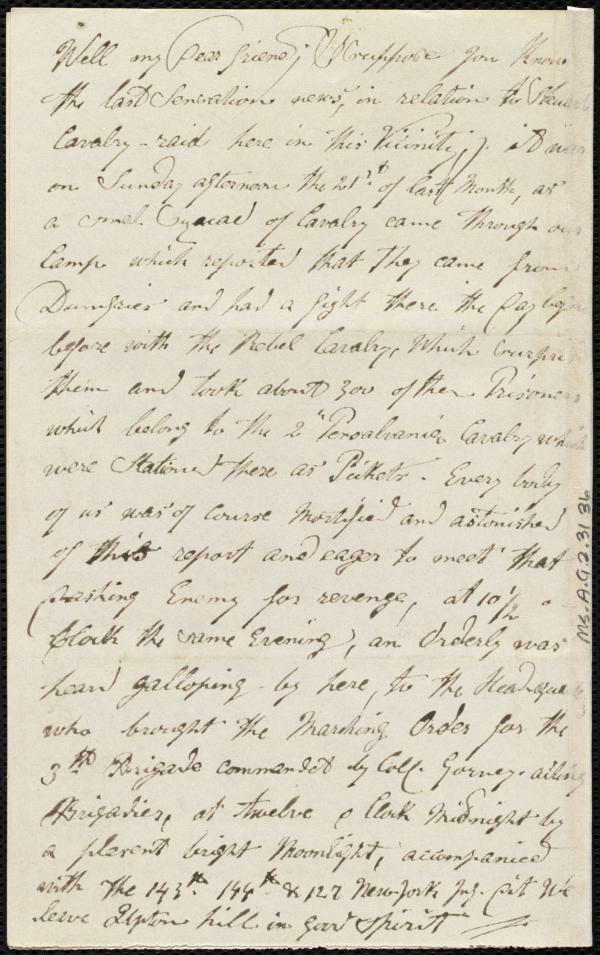 Well my Dear friend, I suppose you know
the last Sensation news, in relation to
Cavalry-raid here in this Vicinity, it was
on Sunday afternoon the 21st of last Month, as
a small Squad of Cavalry came through our
Camp which reported that they came from
Dumfries and had a fight there the Day
before with the Rebel Cavalry, Which
them and took about 300 of them Prisoners
which belong to the 2" Pensalvania Cavalry which
were Stationed there as Pickets. Every body
of us was of course Mortified and astonished
of this report and eager to meet that
Dashing Enemy for revenge, at 10½ o
Clock the same Evening, an Orderly was
heard galloping by here, to the Head-qua
who brought the Marching Order for the
3th Brigade commandet by Coll. Gurney
Brigadier, at twelve o Clock Midnight by
a plesent bright Moonlight, accompanied
with the 143th 144th & 127 New York We
leave Upton hill in good Spirit
Ms.A.9.2.31.36